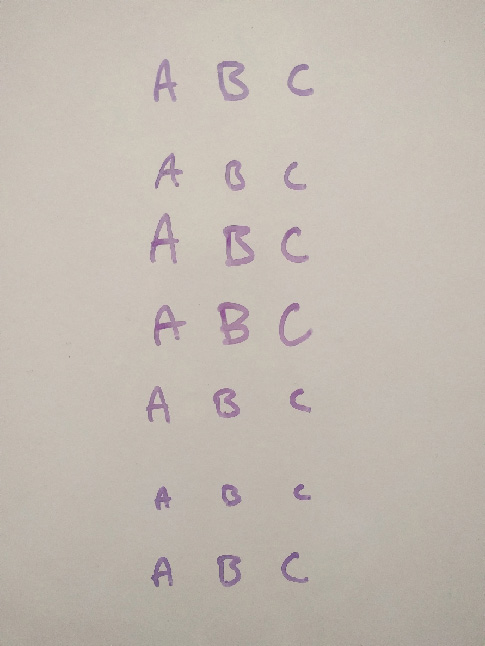 A B C
A B C
A B C
A B C
A B C
A B C
A B C